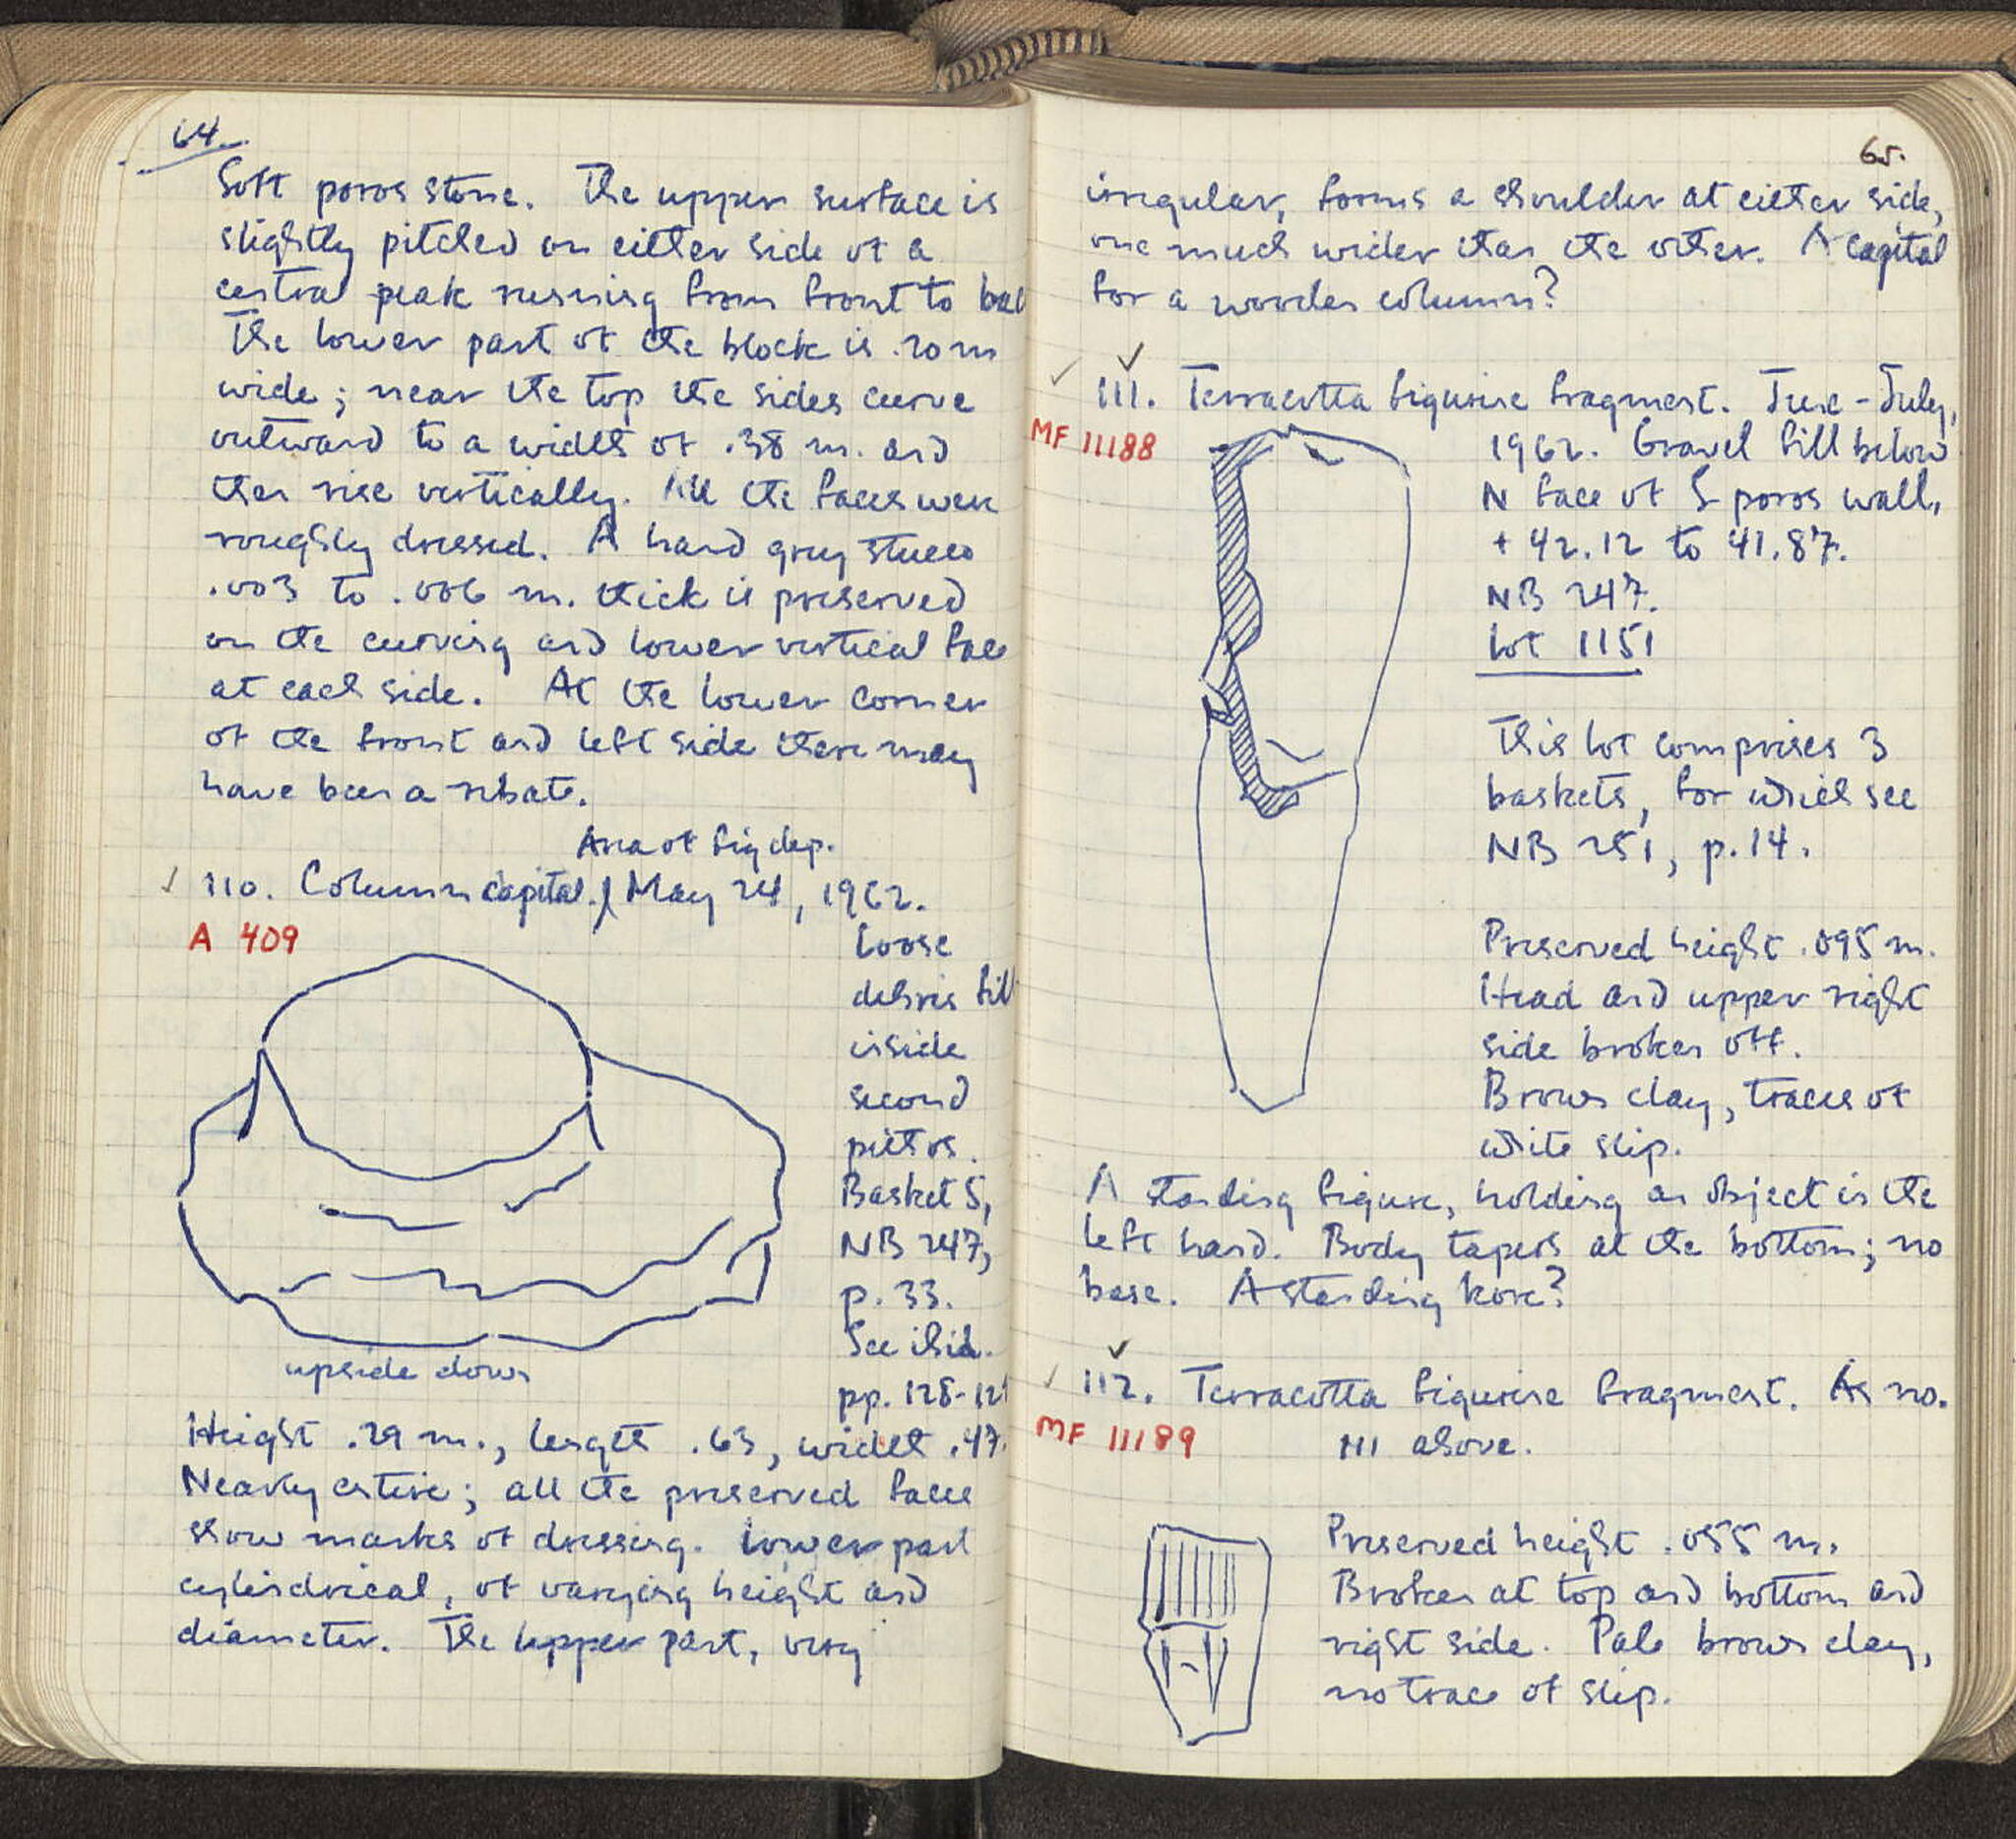 64.
Soft poros stone. The upper surface is
slightly pitched on either side of a
central peak running from front to bac
The lower part of the block is .20 m
wide; near the top the sides curve
outward to a width of .38 m. and
then rise vertically. All the faces were
roughly dressed. A hard grey stucco
.003 to .006 m. thick is preserved
on the curving and lower vertical face
at each side. At the lower corner
of the front and left side there may
have been a rebate.
Area of fig dep.
110. Column capital. May 24, 1962.
A 409
Loose
debris fill
inside
second
pithos.
Basket 5,
NB 247,
p. 33.
See ibid.
pp. 128-12
upside down
Height .29 m., length .63, width .47.
Nearly entire; all the preserved faces
show marks of dressing. Lower part
cylindrical, of varying height and
diameter. The upper part, very
65.
irregular, forms a shoulder at either side,
one much wider than the other. A capital
for a wooden column?
111. Terracotta figurine fragment. June-July,
MF 11188
1962. Gravel fill below
N face of S poros wall,
+ 42.12 to 41.87.
NB 247.
Lot 1151
This lot comprises 3
baskets, for which see
NB 251, p. 14.
Preserved height .095 m.
Head and upper right
side broken off.
Brown clay, traces of
white slip.
A standing figure, holding an object in the
left hand. Body tapers at the bottom; no
base. A standing kore?
112. Terracotta figurine fragment. As no.
MF 11189
111 above.
Preserved height .055 m.
Broken at top and bottom and
right side. Pale brown clay,
no trace of slip.